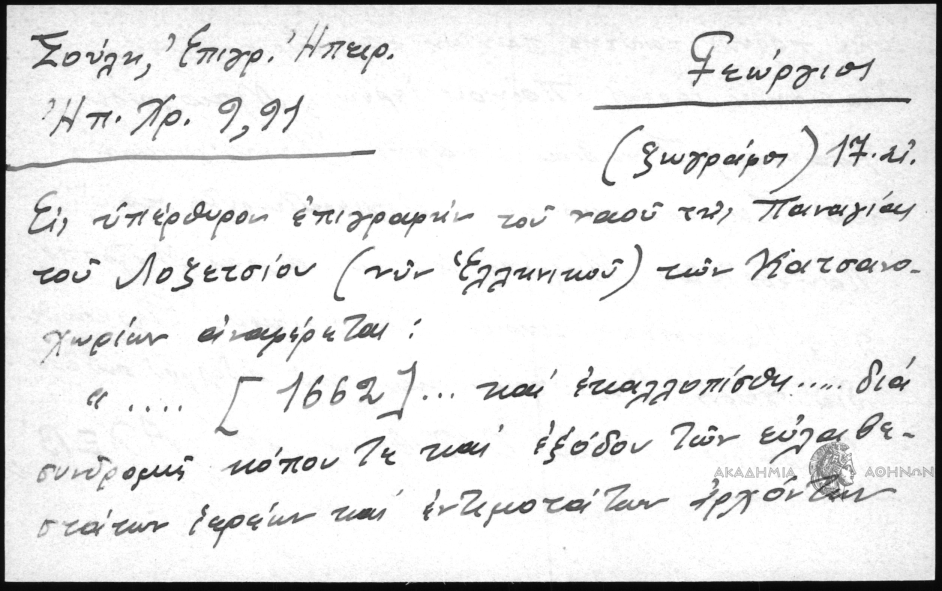 Σούλη, Ἐπιγρ. Ἠπειρ.
Ἠπ. Χρ. 9,91
Γεώργιος
(ζωγράφος) 17. αἰ.
Εἰς ὑπέρθυρον ἐπιγραφὴν τοῦ ναοῦ τῆς Παναγίας
τοῦ Λοζετσίου (νῦν Ἑλληνικοῦ) τῶν Κατσανο-
χωρίων ἀναφέρεται:
".... [1662]... καὶ ἐκαλλοπίσθη..... διὰ
συνδρομῆς κόπου τε καὶ ἐξόδου τῶν εὐλαβε-
στάτων ἱερέων καὶ ἐντιμοτάτων ἀρχόντων
ΑΚΑΔΗΜΙΑ ΑΘΗΝΩΝ